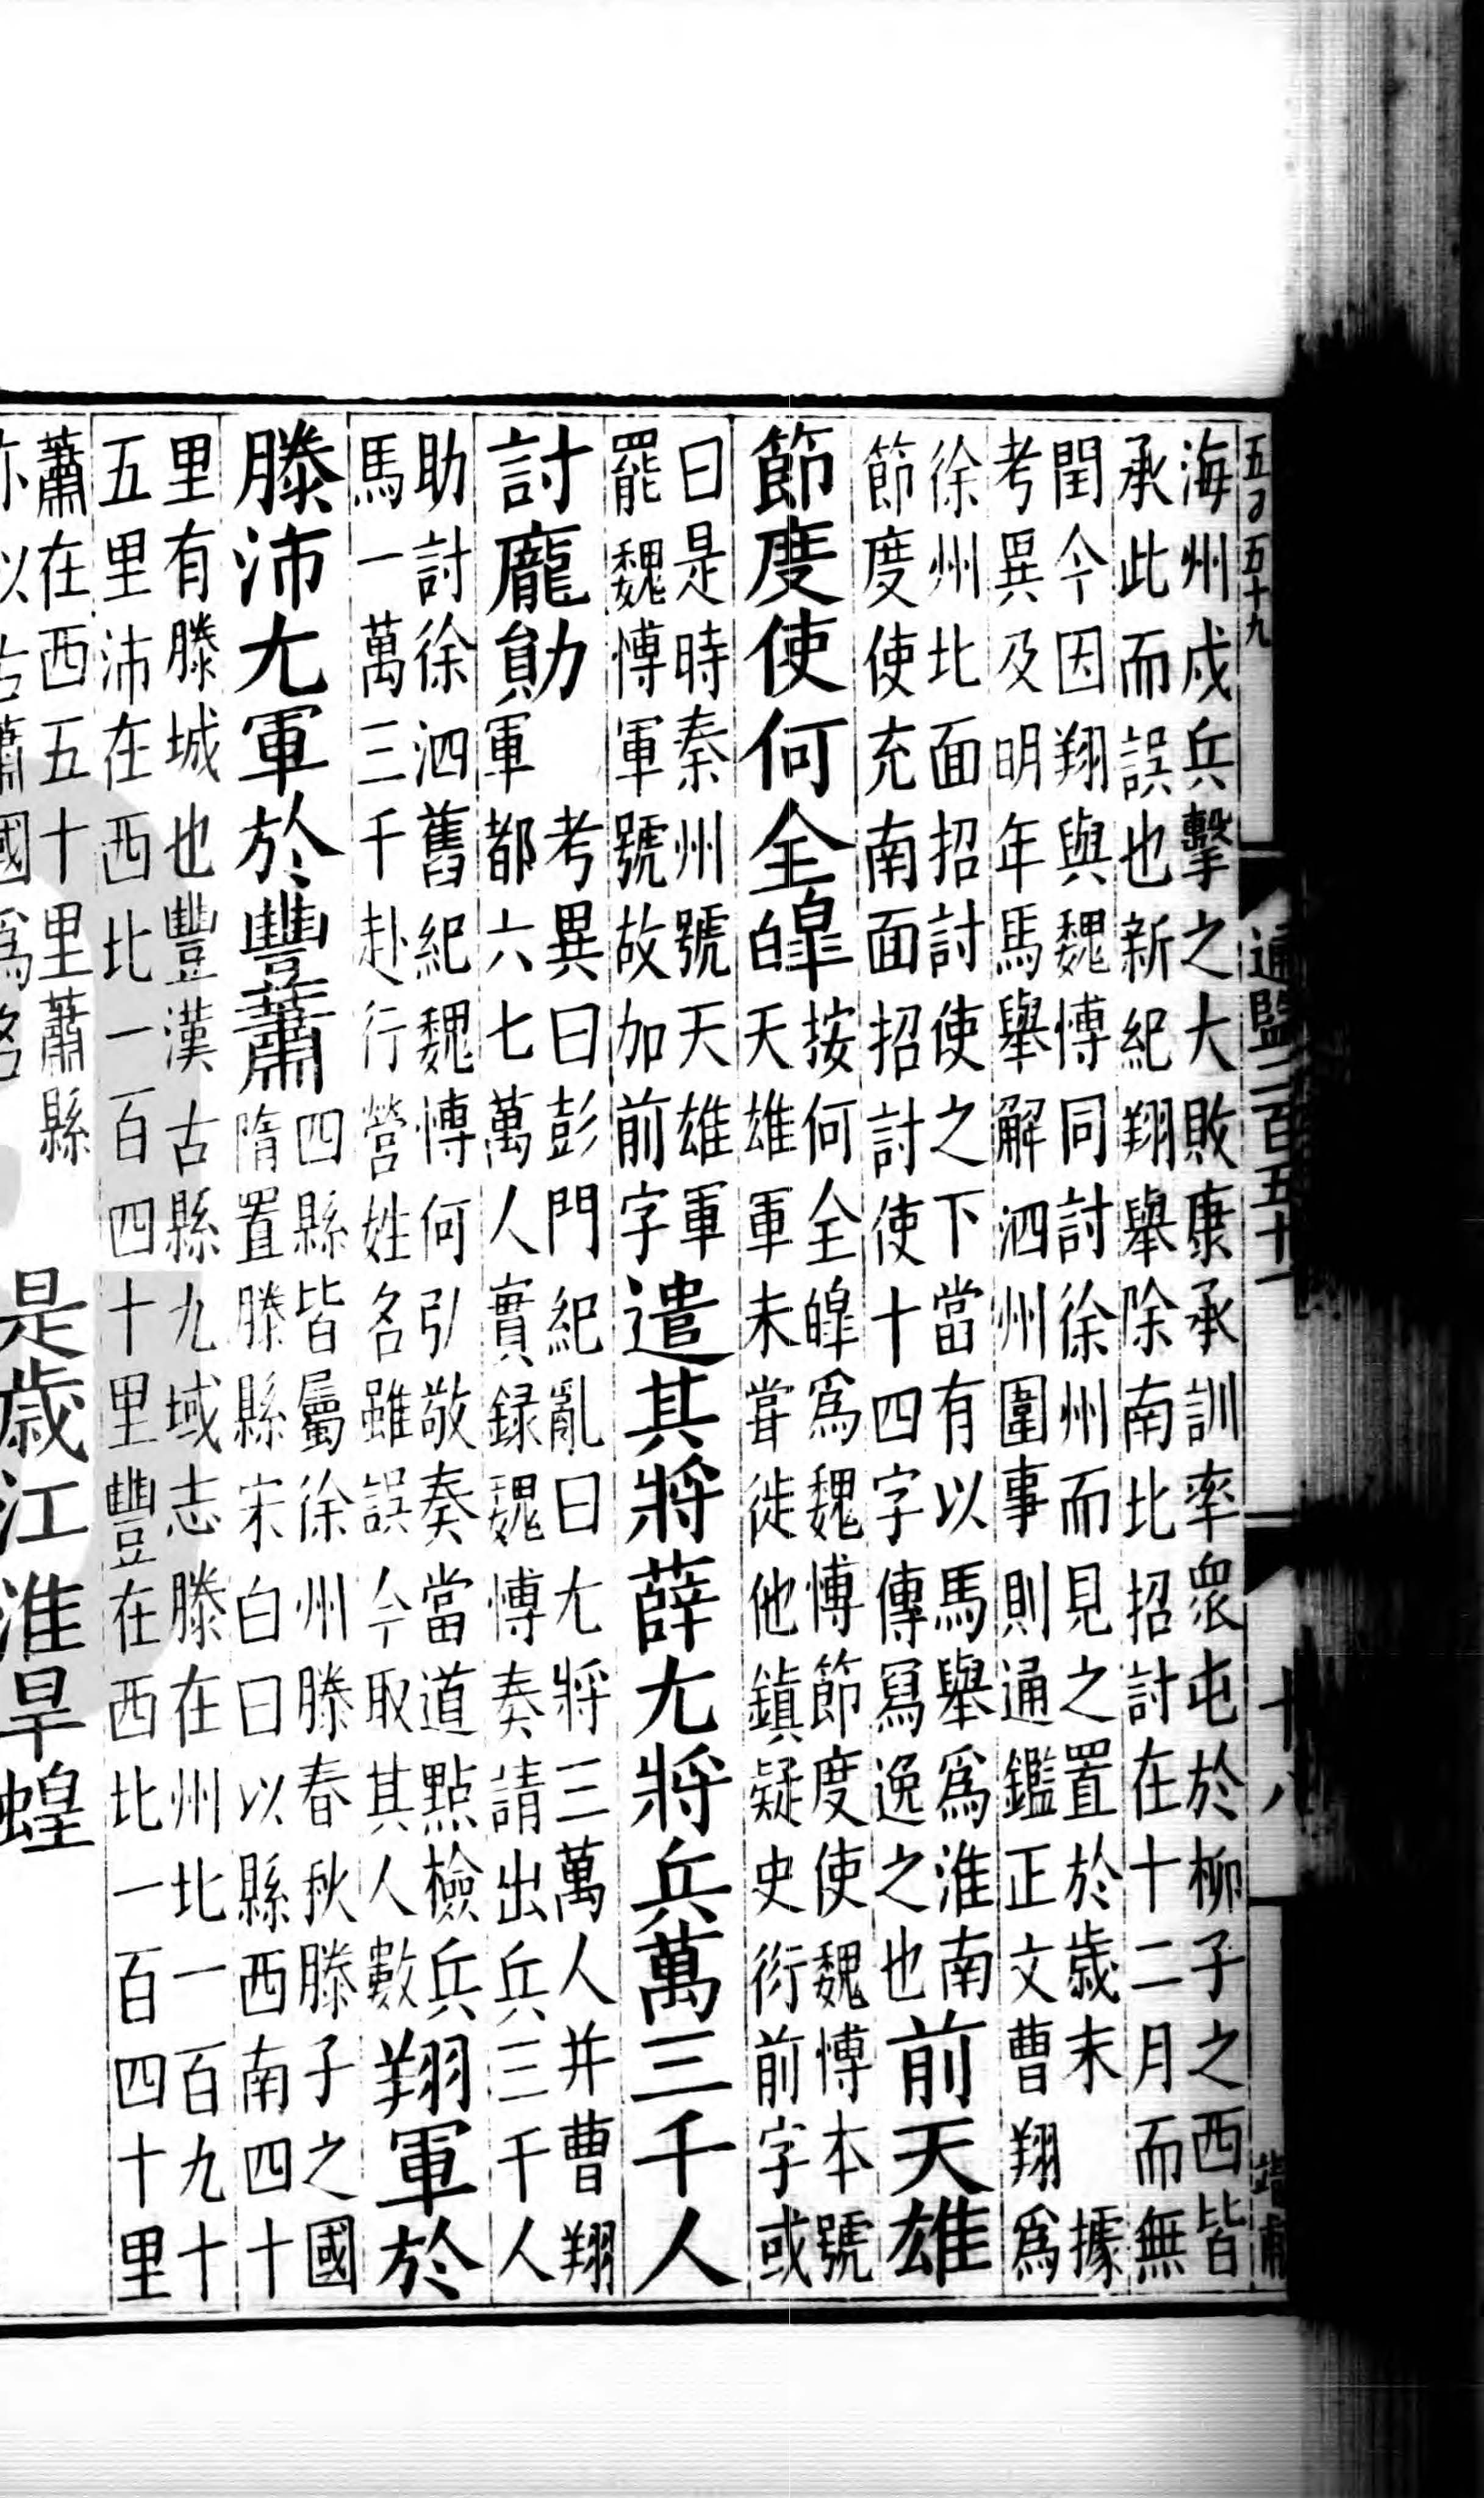 五百五十九
通鑑二百五十一
十八
海州戍兵擊之大敗康承訓率衆屯於柳子之西皆
承此而誤也新紀翔舉除南北招討在十二月而無
閏今因翔與魏博同討徐州而見之置於歲末 據
考異及明年馬舉解泗州圍事則通鑑正文曹翔爲
徐州北面招討使之下當有以馬舉爲淮南
節度使充南面招討使十四字傳寫逸之也
前天雄
節度使何全皡
按何全皡爲魏博節度使魏博本號
天雄軍未嘗徙他鎮疑史衍前字或
曰是時秦州號天雄軍
罷魏博軍號故加前字
遣其將薛尤將兵萬三千人
討龐勛
考異曰彭門紀亂曰尤將三萬人并曹翔
軍都六七萬人實録魏博奏請出兵三千人
助討徐泗舊紀魏博何弘敬奏當道點檢兵
馬一萬三千赴行營姓名雖誤今取其人數
翔軍於
滕沛尤軍於豐蕭
四縣皆屬徐州滕春秋滕子之國
隋置滕縣宋白曰以縣西南四十
里有滕城也豐漢古縣九域志滕在州北一百九十
五里沛在西北一百四十里豐在西北一百四十里
蕭在西五十里蕭縣
亦以古蕭國爲名
是歲江淮旱蝗